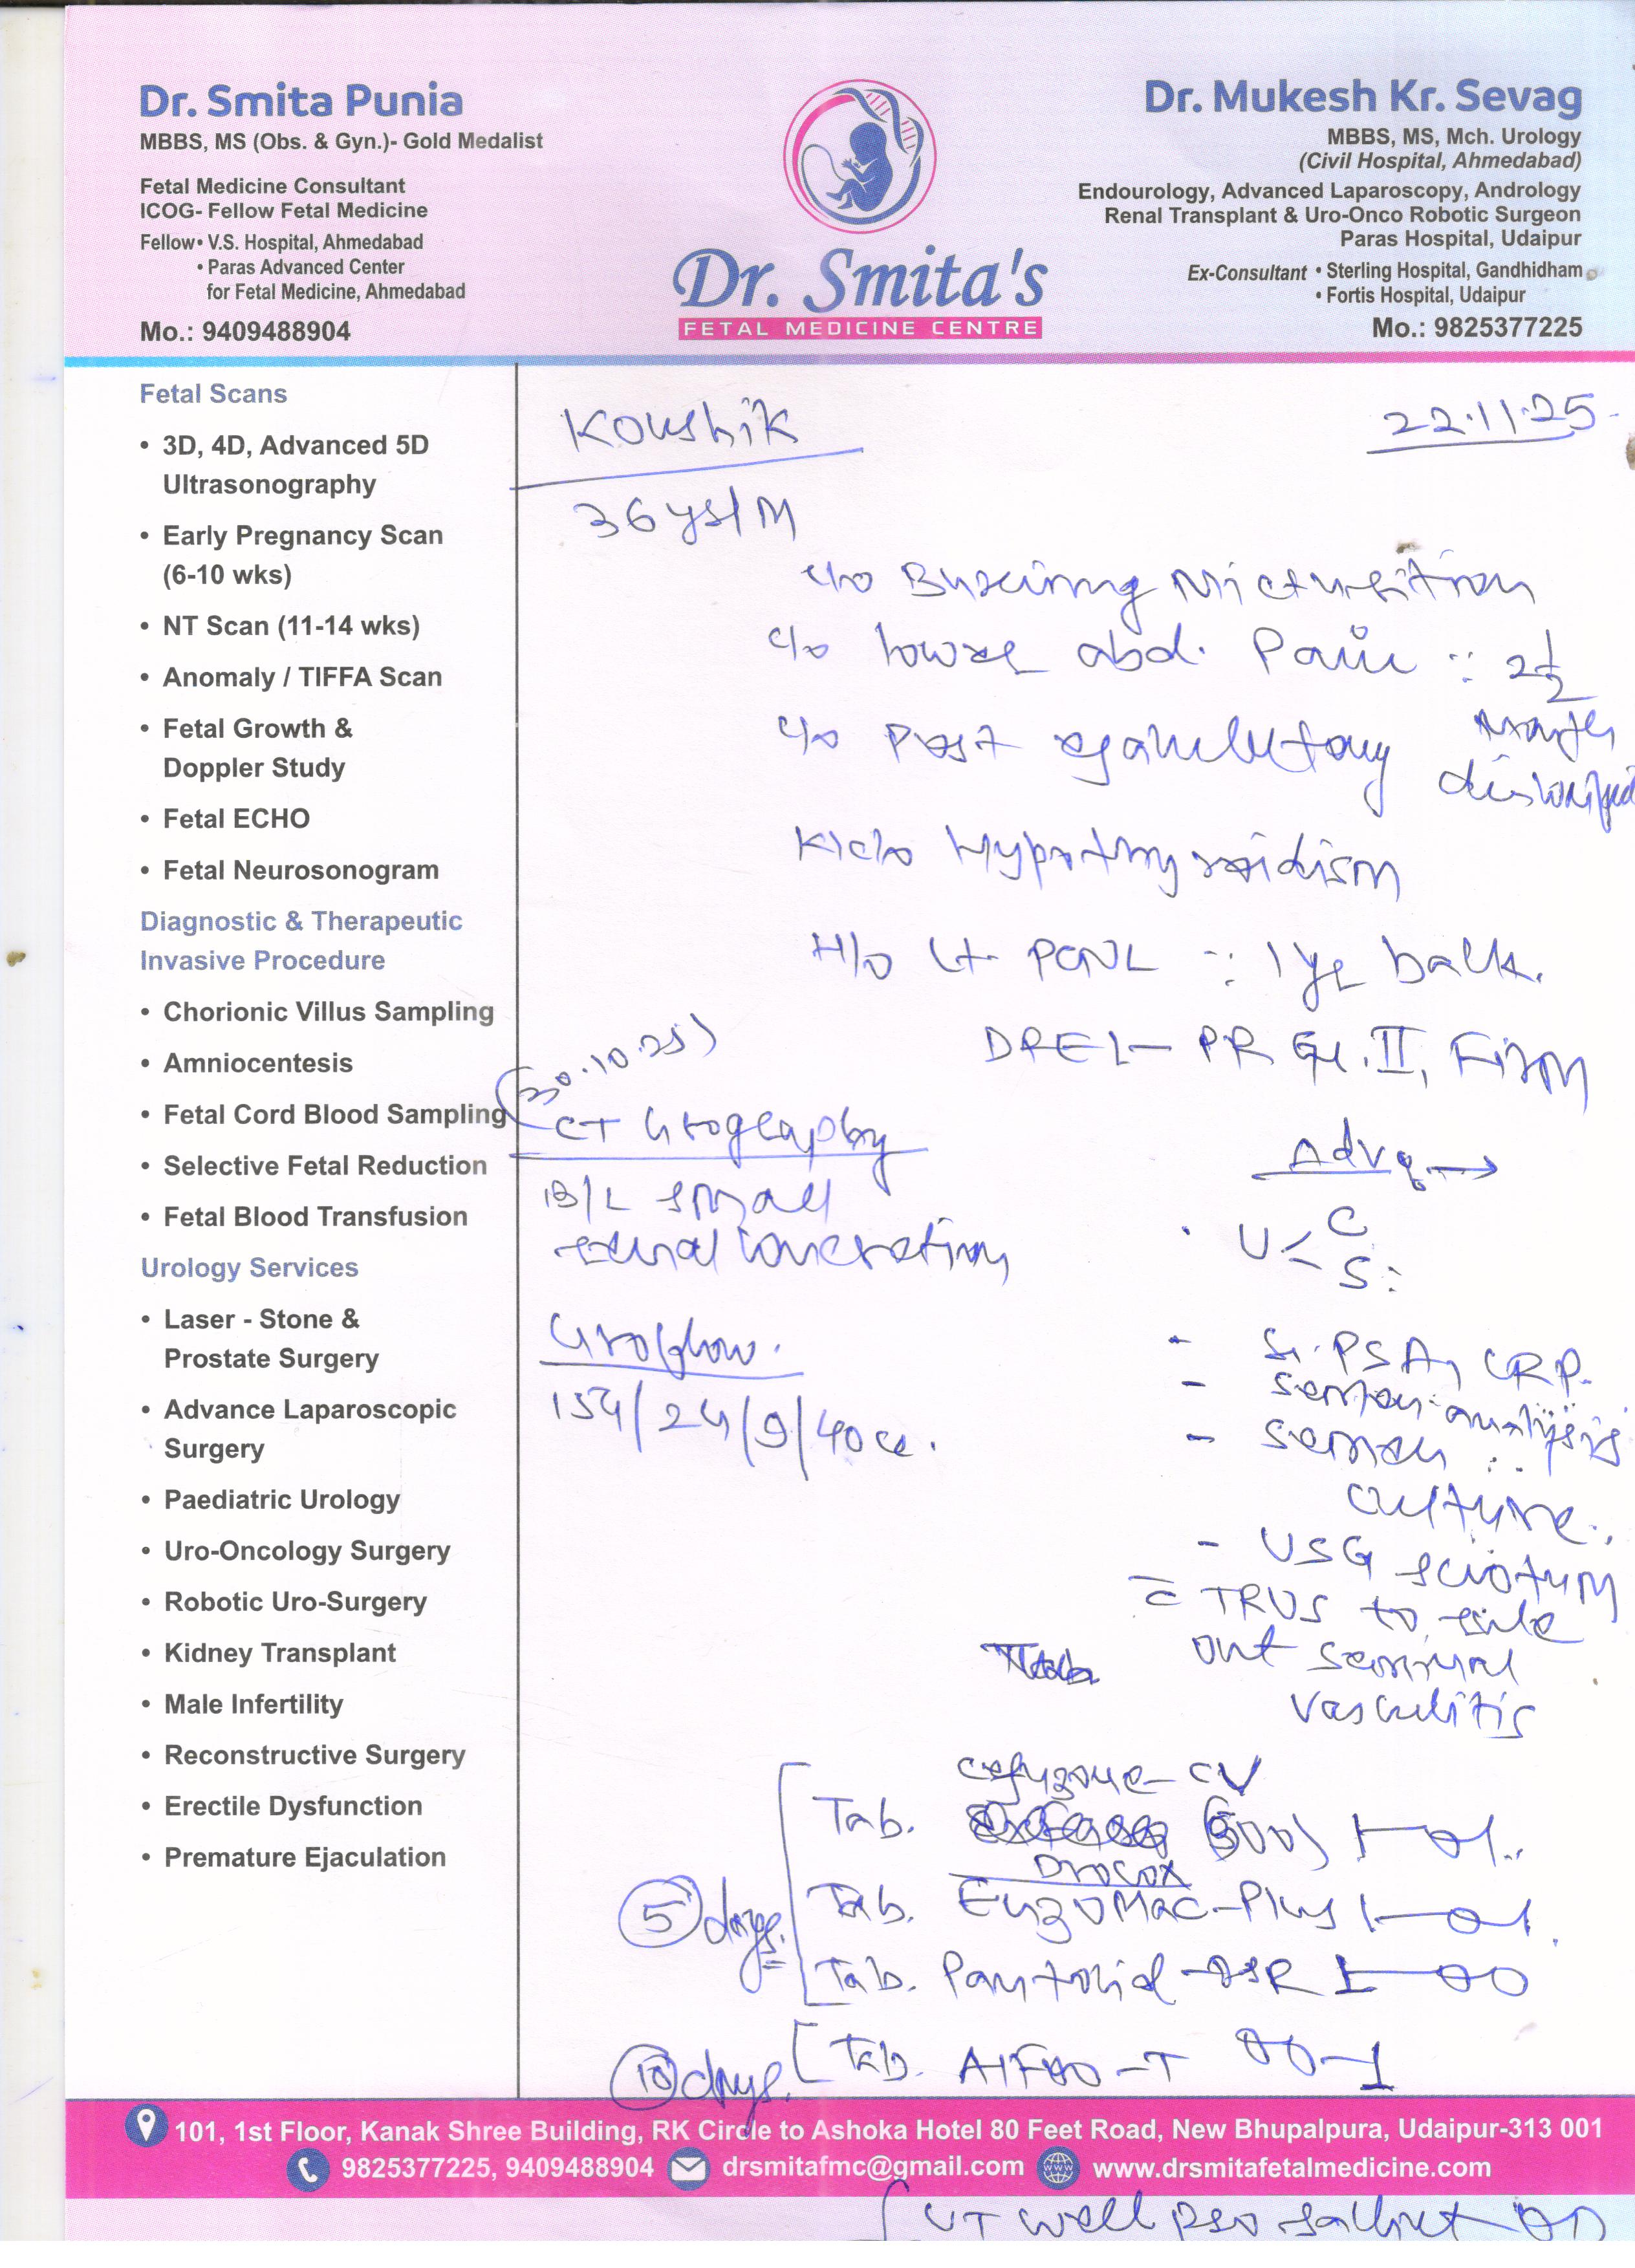 Dr. Smita Punia
MBBS, MS (Obs. & Gyn.)- Gold Medalist
Fetal Medicine Consultant
ICOG- Fellow Fetal Medicine
Fellow• V.S. Hospital, Ahmedabad
• Paras Advanced Center
for Fetal Medicine, Ahmedabad
Mo.: 9409488904
Dr. Smita's
FETAL MEDICINE CENTRE
Dr. Mukesh Kr. Sevag
MBBS, MS, Mch. Urology
(Civil Hospital, Ahmedabad)
Endourology, Advanced Laparoscopy, Andrology
Renal Transplant & Uro-Onco Robotic Surgeon
Paras Hospital, Udaipur
Ex-Consultant • Sterling Hospital, Gandhidham
• Fortis Hospital, Udaipur
Mo.: 9825377225
Fetal Scans
• 3D, 4D, Advanced 5D
Ultrasonography
• Early Pregnancy Scan
(6-10 wks)
• NT Scan (11-14 wks)
• Anomaly / TIFFA Scan
• Fetal Growth &
Doppler Study
• Fetal ECHO
• Fetal Neurosonogram
Diagnostic & Therapeutic
Invasive Procedure
• Chorionic Villus Sampling
• Amniocentesis
• Fetal Cord Blood Sampling
• Selective Fetal Reduction
• Fetal Blood Transfusion
Urology Services
• Laser - Stone &
Prostate Surgery
• Advance Laparoscopic
Surgery
• Paediatric Urology
• Uro-Oncology Surgery
• Robotic Uro-Surgery
• Kidney Transplant
• Male Infertility
• Reconstructive Surgery
• Erectile Dysfunction
• Premature Ejaculation
Koushik
22.11.25
36 ys/M
c/o Burning Micturition
c/o lower abd. Pain : 2 1/2
months
c/o Post ejaculatory
K/c/o Hypothyroidism
H/o Lt PCNL : 1 yr back.
DRE - PR Gr. II, Firm
(30.10.25)
CT Urography
B/L small
renal concretion
Uroflow.
154/24/9/40cc.
Adv →
• U < C
S
- Sr. PSA, CRP.
- Semen analysis
- Semen
culture
- USG scrotum
c TRUS to rule
out seminal
vasculitis
cefuzone-CV
Tab. (500) 1-0-1
Drocox
Tab. Enzomac-Plus 1-0-1
Tab. -DSR 1-0-0
5 days
10 days
Tab. 0-0-1
101, 1st Floor, Kanak Shree Building, RK Circle to Ashoka Hotel 80 Feet Road, New Bhupalpura, Udaipur-313 001
9825377225, 9409488904 drsmitafmc@gmail.com www.drsmitafetalmedicine.com
well